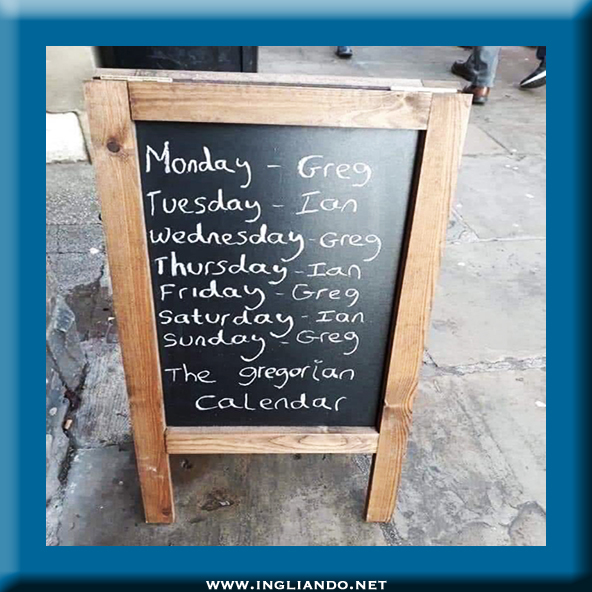 Monday - Greg
Tuesday - Ian
Wednesday - Greg
Thursday - Ian
Friday - Greg
Saturday - Ian
Sunday - Greg
The gregorian
Calendar
WWW.INGLIANDO.NET